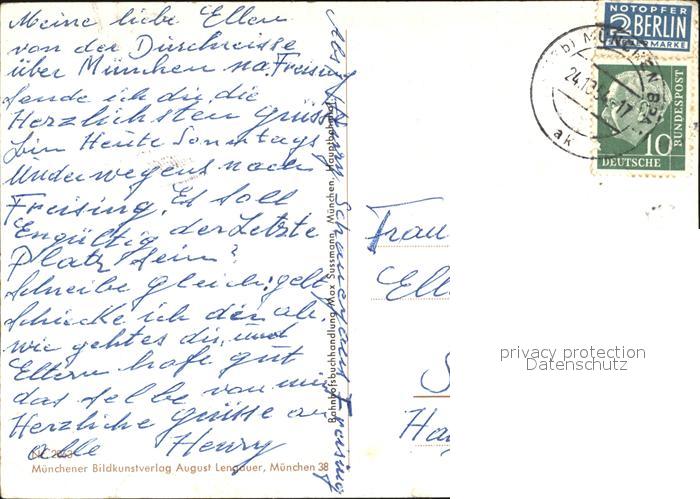 Meine liebe Ellen
von der Durchreisse
über München na. Freising
sende ich dir die
Herzlichsten Grüsse
bin Heute Sonntags
Underwegens nach
Freising. Es soll
Engültig der Letzte
Platz sein?
Schreibe gleich: gelt
Schicke ich den ab.
wie geht es dir, und
Eltern hofe gut
das selbe von mir
Herzliche Grüsse an
alle Henry
Freising
Bahnhofsbuchhandlung Max Sussmann, München, Hauptbahnhof
Münchener Bildkunstverlag August Lengauer, München 38
NOTOPFER
2 BERLIN
STEUERMARKE
MÜNCHEN BPA
24.10.
17
ak
10
DEUTSCHE
BUNDESPOST
Frau
Ell
privacy protection
Datenschutz
Ha